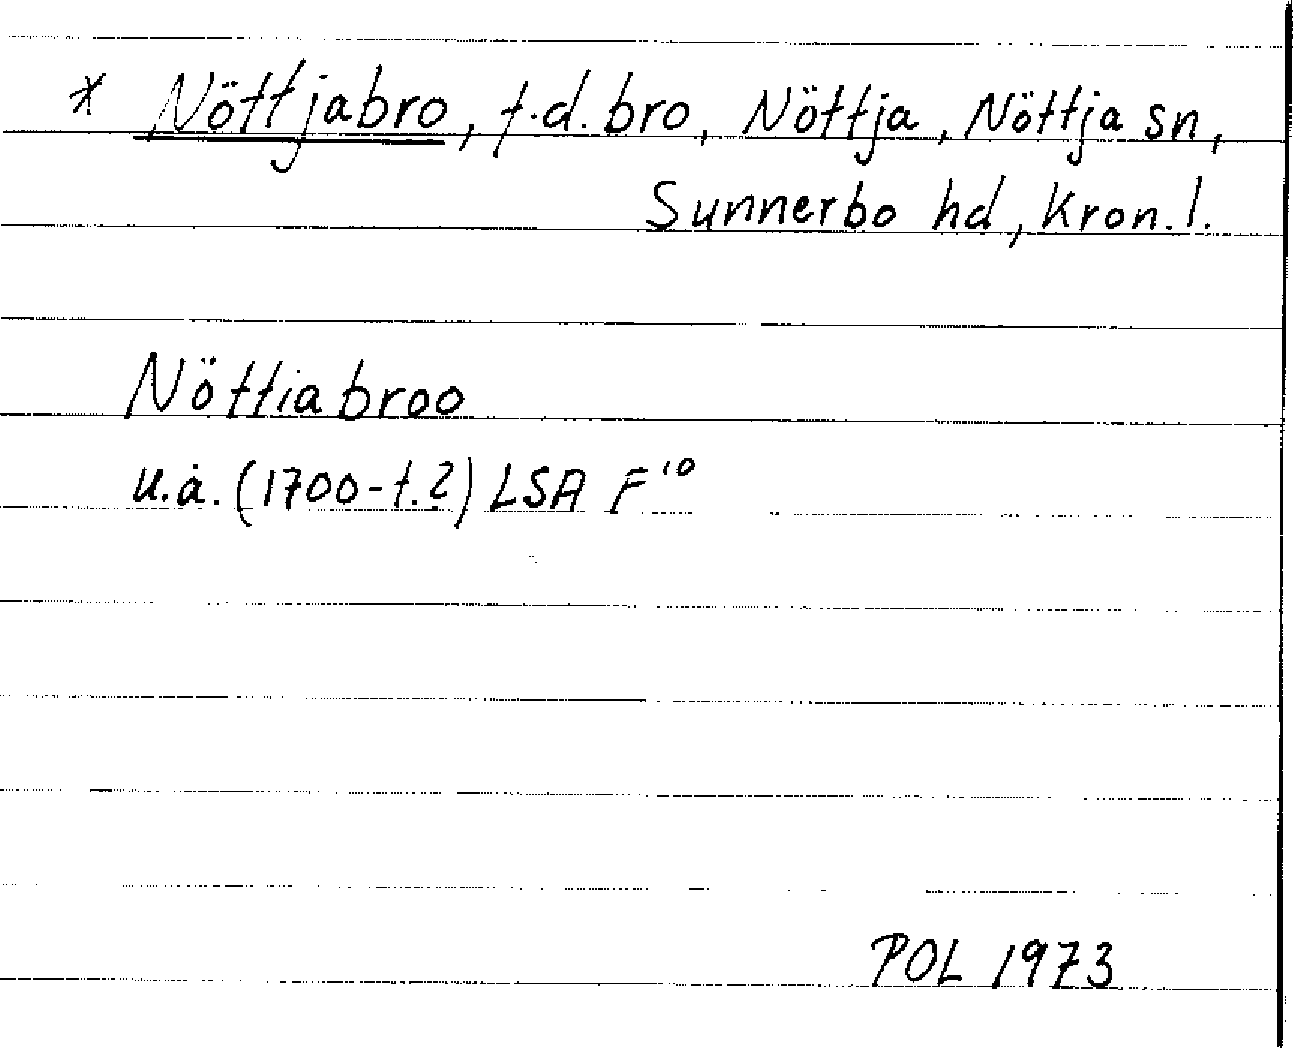 * Nöttjabro, f.d. bro, Nöttja, Nöttja sn,
Sunnerbo hd, Kron. l.
Nöttiabroo
u.å. (1700-t.?) LSA F¹⁰
POL 1973